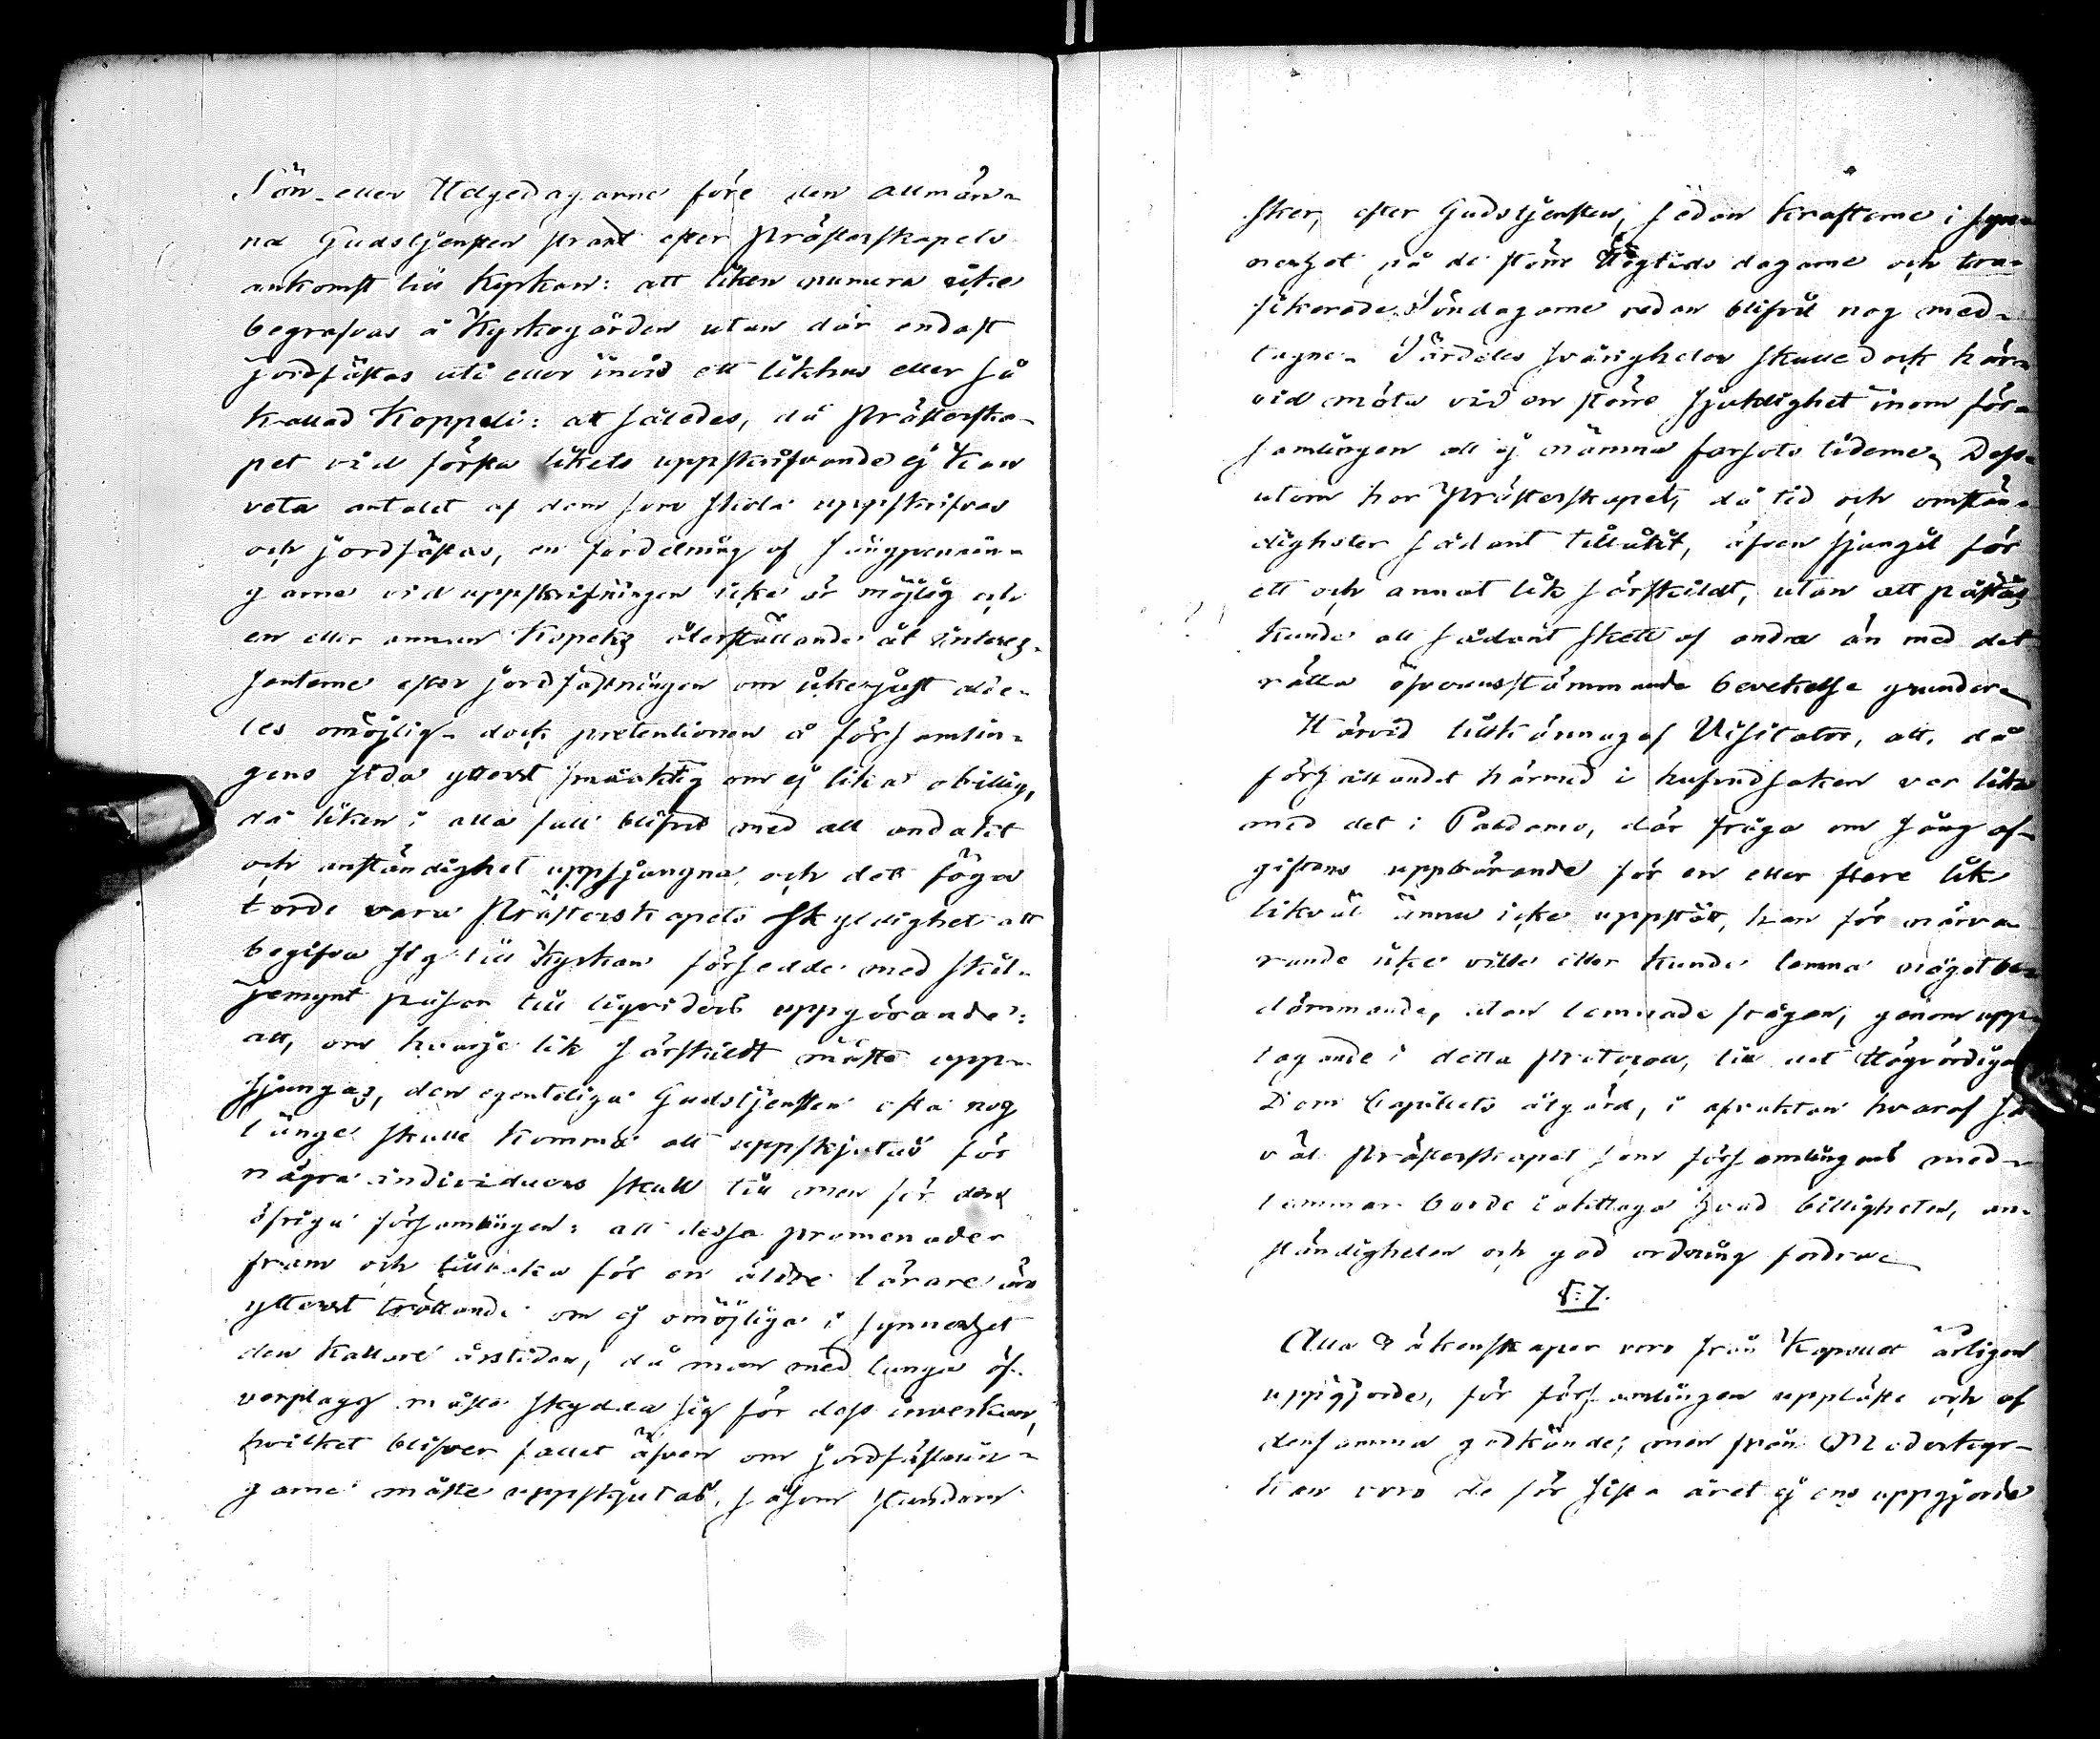 Sön- eller Helgedagarne före den allmän-
na Gudstjensten strax efter Presterskapets
ankomst till Kyrkan: att liken numera icke
begrafvas å Kyrkogården utan där endast
jordfästas uti eller invid ett likhus eller så
kallad Koppeli: att således, då Prästerska-
pet vid första likets uppskrifvande ej kan
veta antalet af dem som skola uppskrifvas
och jordfästas, en fördelning af sångpennin-
garne vid uppskrifningen icke är möjlig och
en eller annan Kopeks återställande åt intress-
senterne efter jordfästningen om icke just alde-
les omöjlig - dock pretentionen å församlin-
gens sida ytterst småaktig om ej lika obillig,
då liken i alla fall blifvit med all andakt
och anständighet uppsjungna och det föga
torde vara Prästerskapets skyldighet att
begifva sig till Kyrkan försedde med skil-
jemynt påsar till liqviders uppgörande:
att, om hvarje lik särskildt måste upp-
sjungas, den egenteliga Gudstjensten ofta nog
länge skulle komma att uppskjutas för
några individuers skull till men för den
öfriga församlingen: att dessa promenader
fram och tillbaka för en äldre lärare äro
ytterst tröttande om ej omöjliga i synnerhet
den kallare årstiden, då man med tunga öf-
verplagg måste skydda sig för dess inverkan,
hvilket blifver fallet äfven om jordfästnin-
garne måste uppskjutas, såsom stundom
sker, efter Gudstjensten, sedan krafterne i syn-
nerhet på de större Högtids dagarne och
Söndagarne redan blifvit nog med-
tagne. Särdeles svårigheter skulle dock här-
vid möta vid en större sjuklighet inom för-
samlingen att ej nämna farsots tiderne. Dess-
utom har Prästerskapet, då tid och omstän-
digheter sådant tillåtit, äfven sjungit för
ett och annat lik särskildt, utan att påstås
kunde att sådant skett af andra än med det
rätta öfverensstämmande bevekelse grunder.
Härvid tillkännagaf Visitator, att, då
förhållandet härmed i hufvudsaken var lika
med det i Padamo, där fråga om sång af-
giftens uppbärande för en eller flere lik
likväl ännu icke uppstått, han för närva-
rande icke ville eller kunde lemna något be-
dömmande, utan lemnade frågan, genom upp-
tagande i detta Protocoll, till det Högvördiga
Dom Capitlets åtgärd, i afvaktan hvaraf så
väl Prästerskapet som församlingens med-
lemmar borde iakttaga hvad billigheten, an-
ständigheten och god ordning fordra.
§: 7.
Alla Räkenskaper voro från Kapellet årligen
uppgjorde, för församlingen uppläste och af
densamma godkände; men från Moderkyr-
kan voro de för sista året ej ens uppgjorde